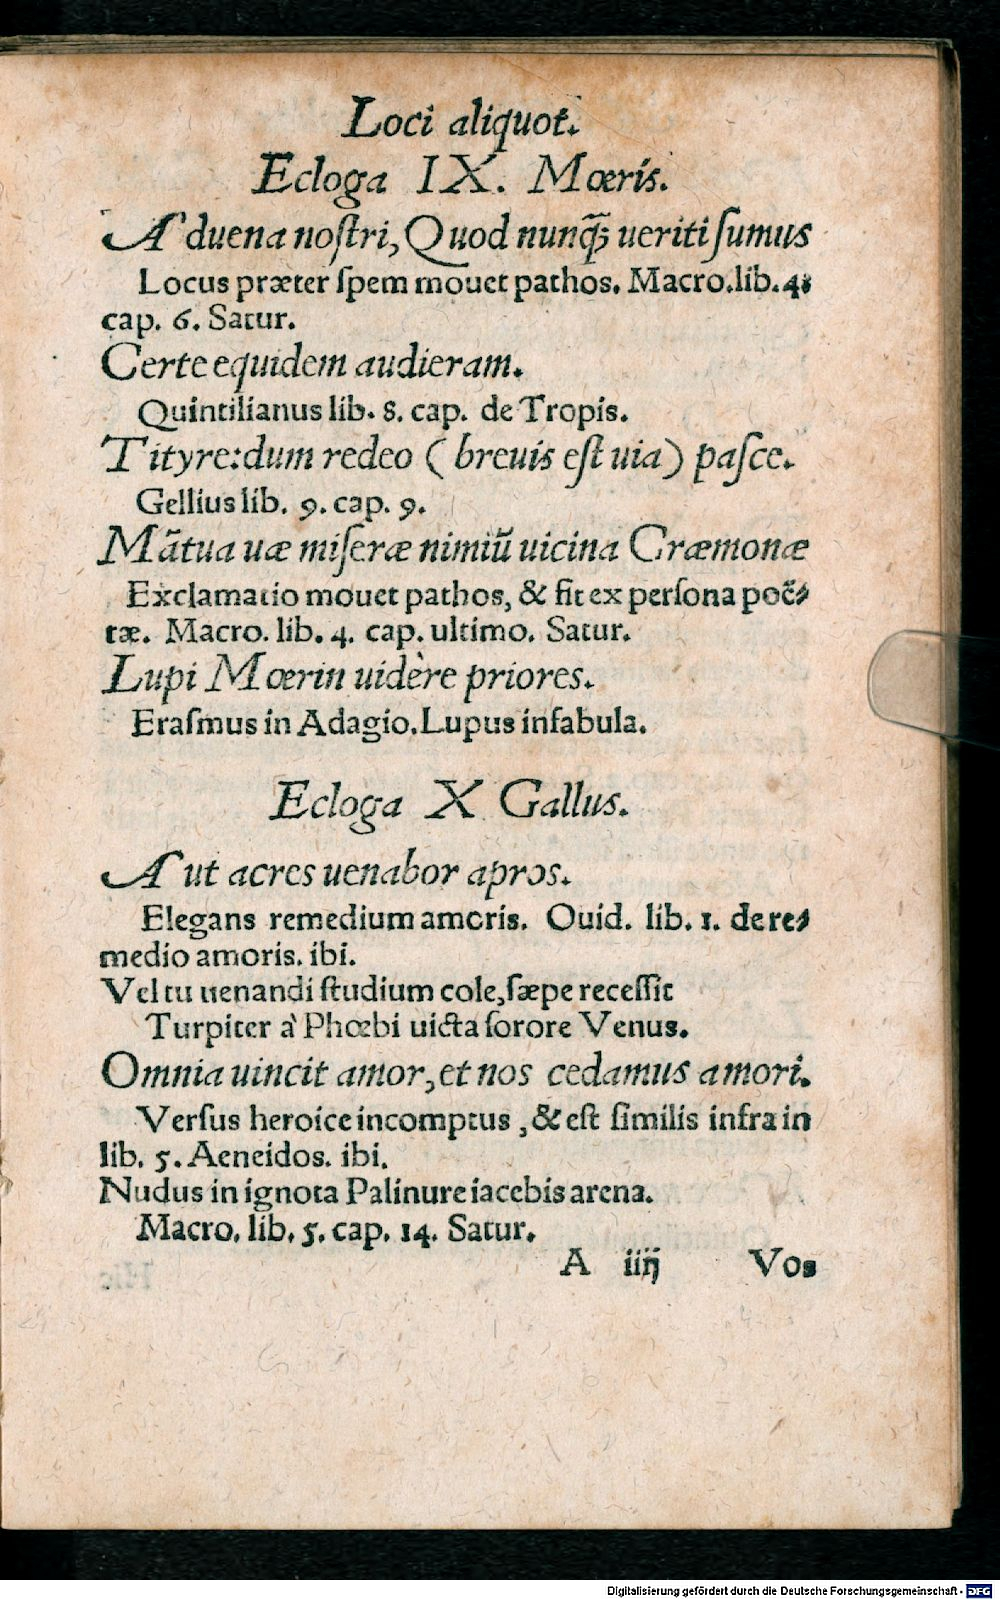 Loci aliquot.
Ecloga IX. Mœris.
Aduena noſtri, Quod nunq̃ꝫ ueriti ſumus
Locus præter ſpem mouet pathos. Macro.lib.4.
cap. 6. Satur.
Certe equidem audieram.
Quintilianus lib. 8. cap. de Tropis.
Tityre:dum redeo ( breuis eſt uia ) paſce.
Gellius lib. 9. cap. 9.
Mãtua uæ miſeræ nimiũ uicina Cræmonæ
Exclamatio mouet pathos, & fit ex perſona poë-
tæ. Macro. lib. 4. cap. ultimo. Satur.
Lupi Mœrin uidère priores.
Eraſmus in Adagio.Lupus in fabula.
Ecloga X Gallus.
Aut acres uenabor apros.
Elegans remedium amoris. Ouid. lib. 1. de re-
medio amoris. ibi.
Vel tu uenandi ſtudium cole,ſæpe receſſit
Turpiter à Phœbi uicta ſorore Venus.
Omnia uincit amor,et nos cedamus amori.
Verſus heroice incomptus ,& eſt ſimilis infra in
lib. 5. Aeneidos. ibi.
Nudus in ignota Palinure iacebis arena.
Macro. lib. 5. cap. 14. Satur.
A iiij Vos
Digitalisierung gefördert durch die Deutsche Forschungsgemeinschaft - DFG